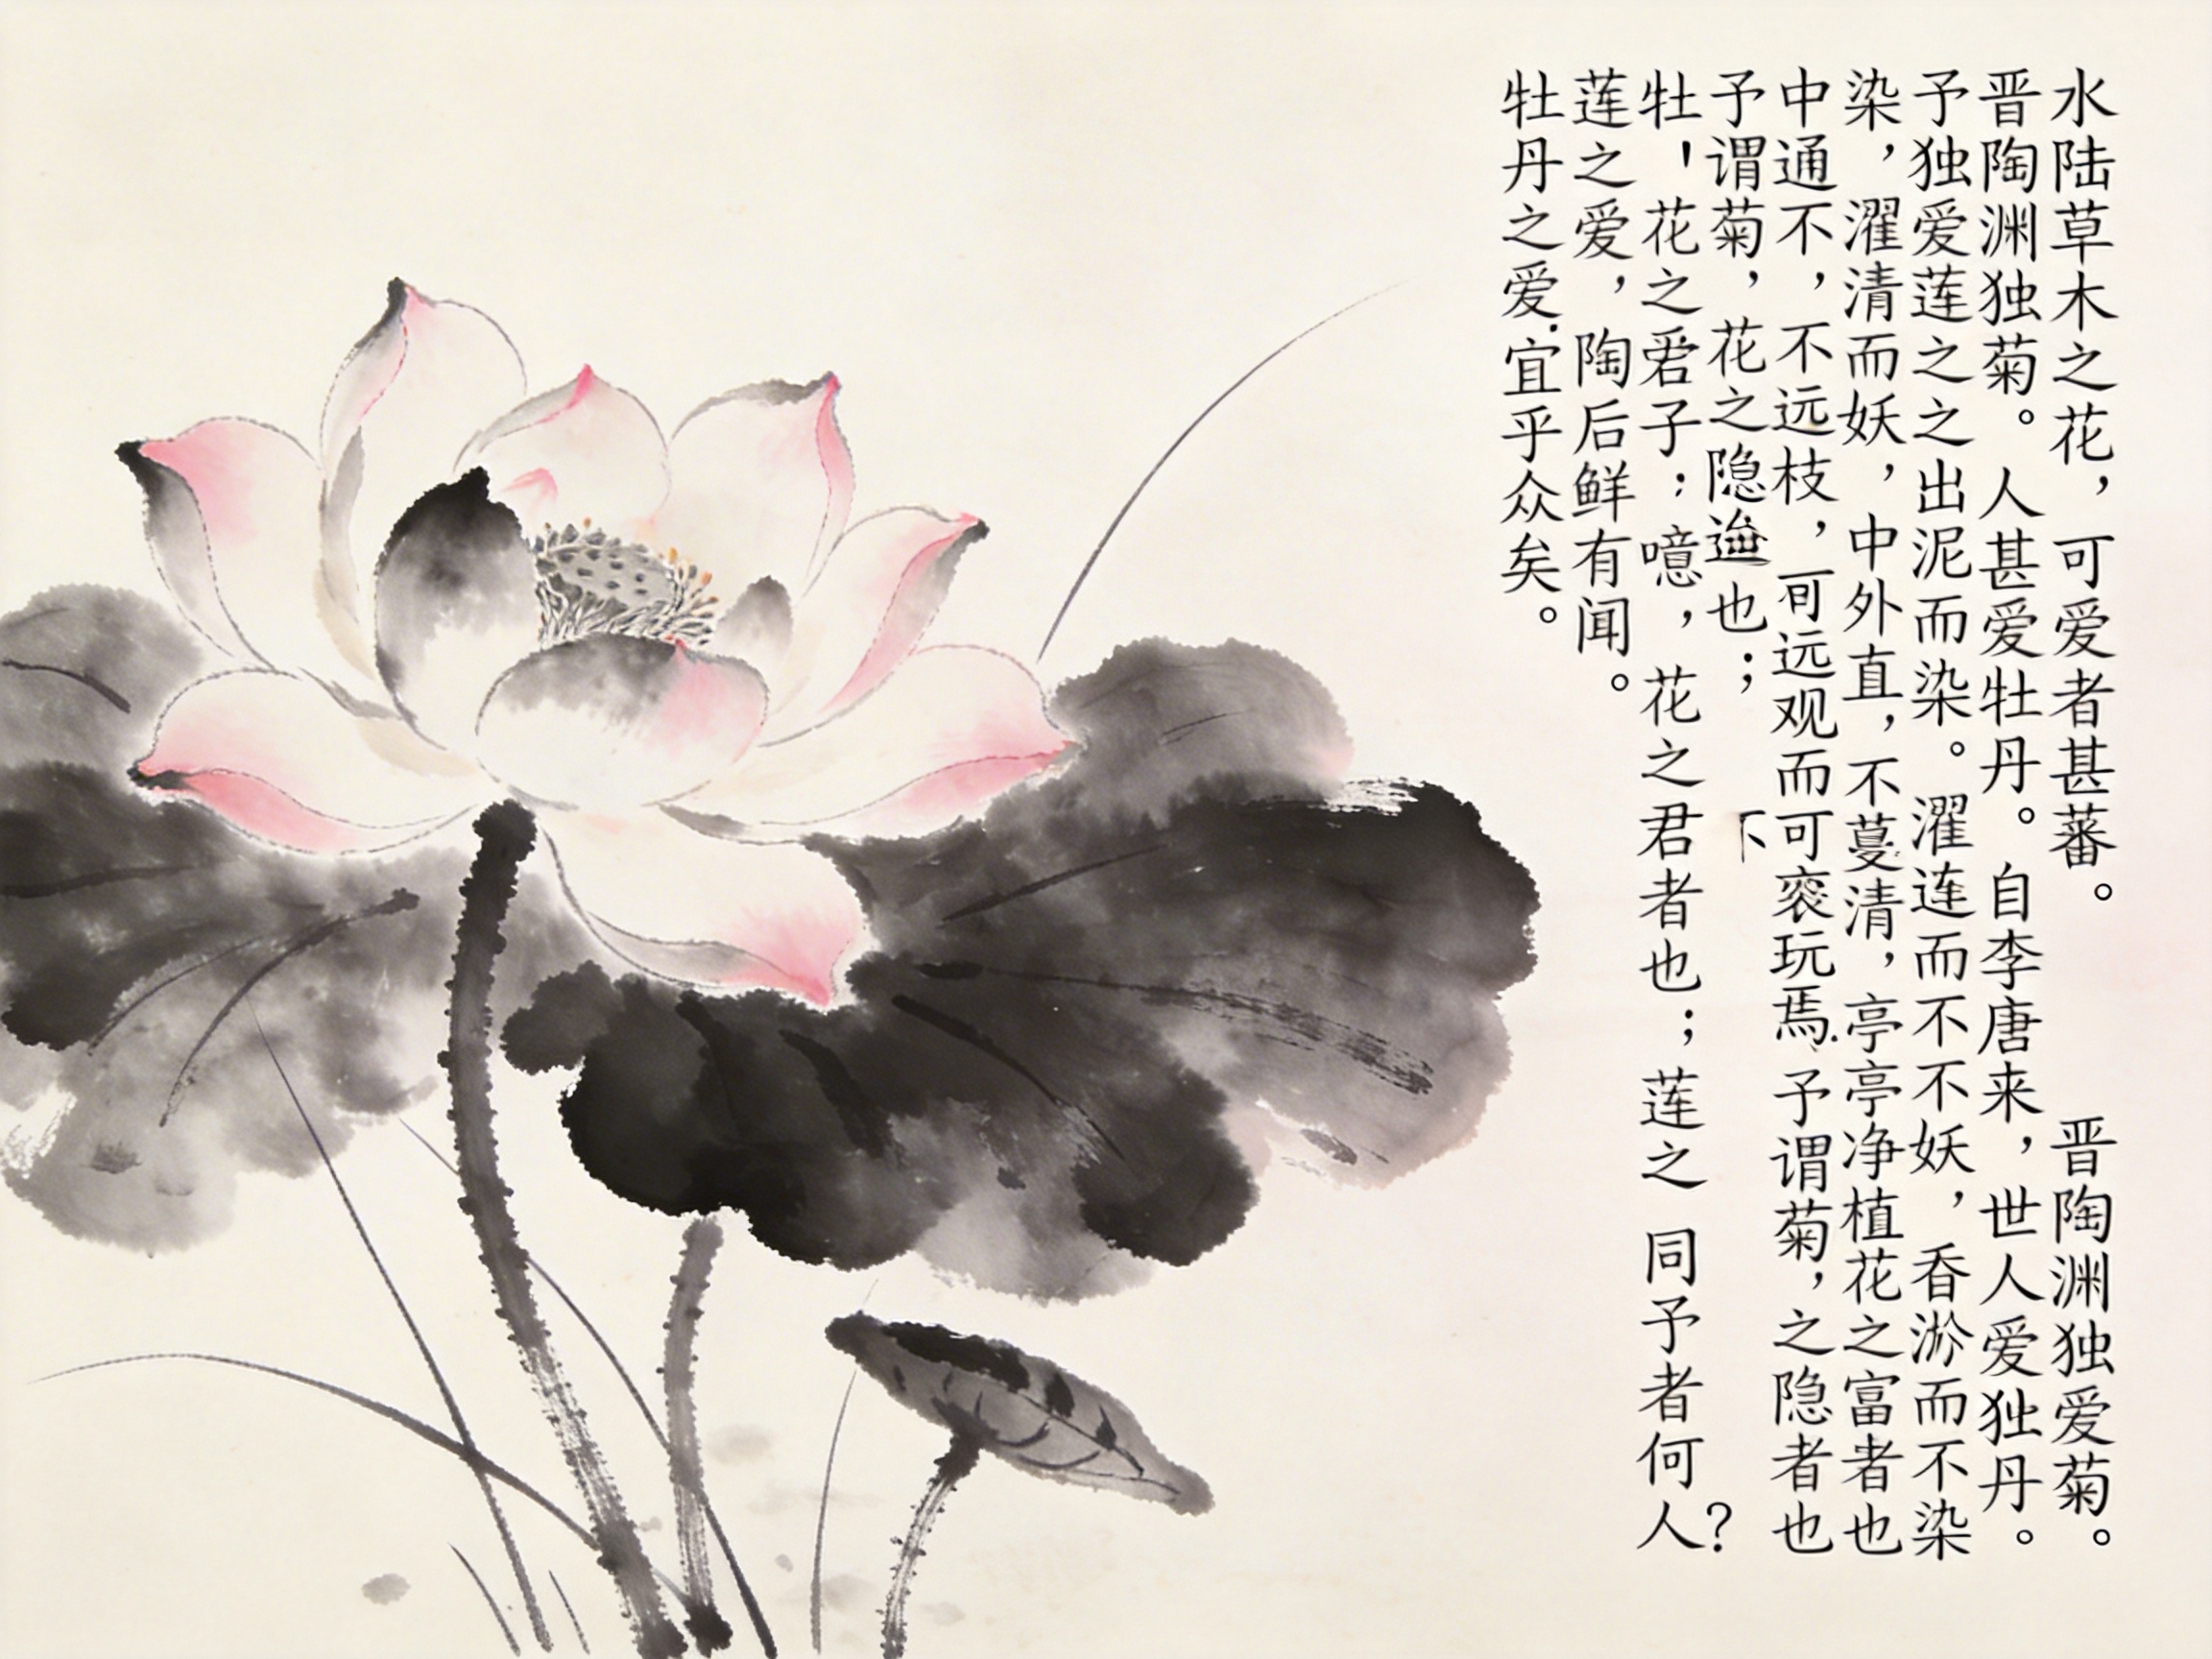 水陆草木之花，可爱者甚蕃。 晋陶渊独爱菊。
晋陶渊独菊。人甚爱牡丹。自李唐来，世人爱独丹。
予独爱莲之之出泥而染。濯连而不不妖，香淤而不染
染，濯清而妖，中外直，不蔓清，亭亭净植花之富者也
中通不，不远枝，可远观而可亵玩焉.予谓菊，之隐者也
予谓菊，花之隐也；
牡'花之君子；噫，花之君者也；莲之 同予者何人？
莲之爱，陶后鲜有闻。
牡丹之爱.宜乎众矣。